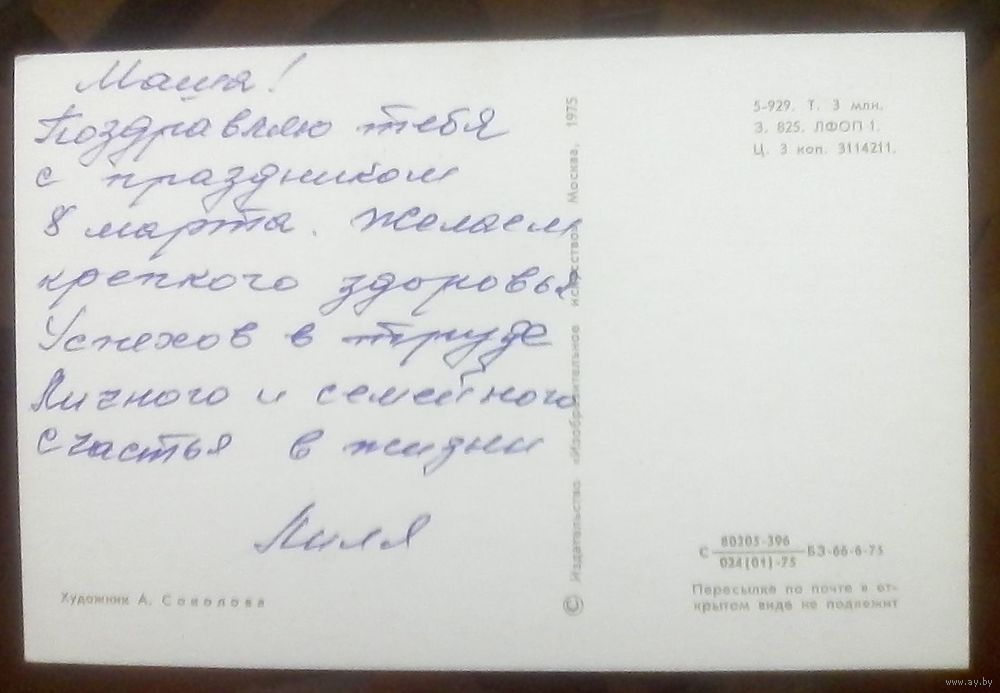 Маша!
Поздравляю тебя
с праздником
8 марта. Желаем
крепкого здоровья
Успехов в труде
Личного и семейного
счастья в жизни
Лиля
Художник А. Соколова
© Издательство «Изобразительное искусство». Москва. 1975
5-929. Т. 3 млн.
З. 825. ЛФОП 1.
Ц. 3 коп. 3114211.
С 80205-396
024(01)-75 БЗ-66-6-75
Пересылке по почте в от-
крытом виде не подлежит
www.ay.by